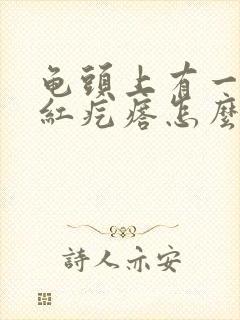 龟頭上有一
紅疙瘩怎麼
詩人亦安